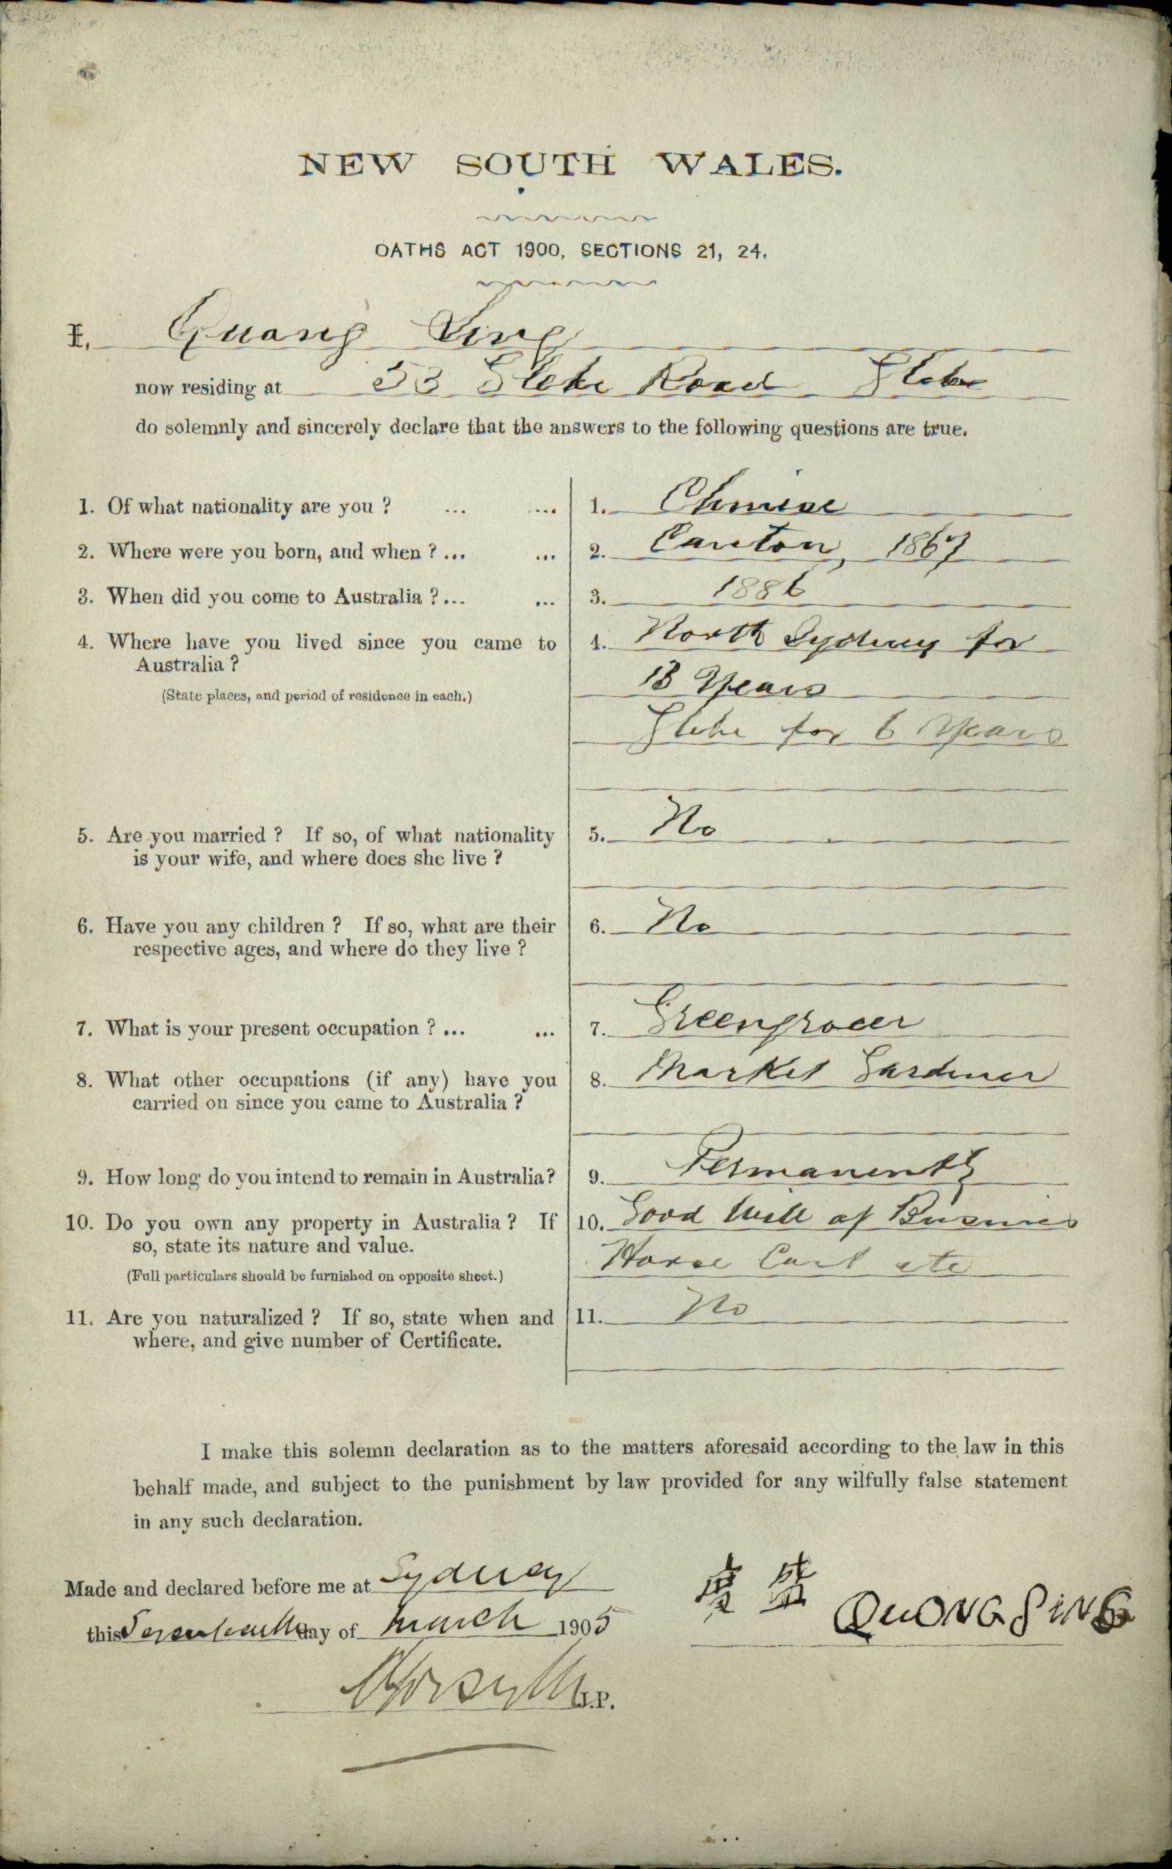 NEW SOUTH WALES.
OATHS ACT 1900, SECTIONS 21, 24.
I, Quong Sing
now residing at 53 Glebe Road Glebe
do solemnly and sincerely declare that the answers to the following questions are true.
1. Of what nationality are you ? ... ... 1. Chinese
2. Where were you born, and when ? ... ... 2. Canton, 1867
3. When did you come to Australia ? ... ... 3. 1886
4. Where have you lived since you came to 4. North Sydney for
Australia ?
(State places, and period of residence in each.) 13 Years
Glebe for 6 Years
5. Are you married ? If so, of what nationality 5. No
is your wife, and where does she live ?
6. Have you any children ? If so, what are their 6. No
respective ages, and where do they live ?
7. What is your present occupation ? ... ... 7. Greengrocer
8. What other occupations (if any) have you 8. Market Gardener
carried on since you came to Australia ?
9. How long do you intend to remain in Australia? 9. Permanently
10. Do you own any property in Australia ? If 10. Good Will of Business
so, state its nature and value. Horse Cart etc
(Full particulars should be furnished on opposite sheet.)
11. Are you naturalized ? If so, state when and 11. No
where, and give number of Certificate.
I make this solemn declaration as to the matters aforesaid according to the law in this
behalf made, and subject to the punishment by law provided for any wilfully false statement
in any such declaration.
Made and declared before me at Sydney
盛 QUONG SING
this Seventeenth day of March 1905
J.P.